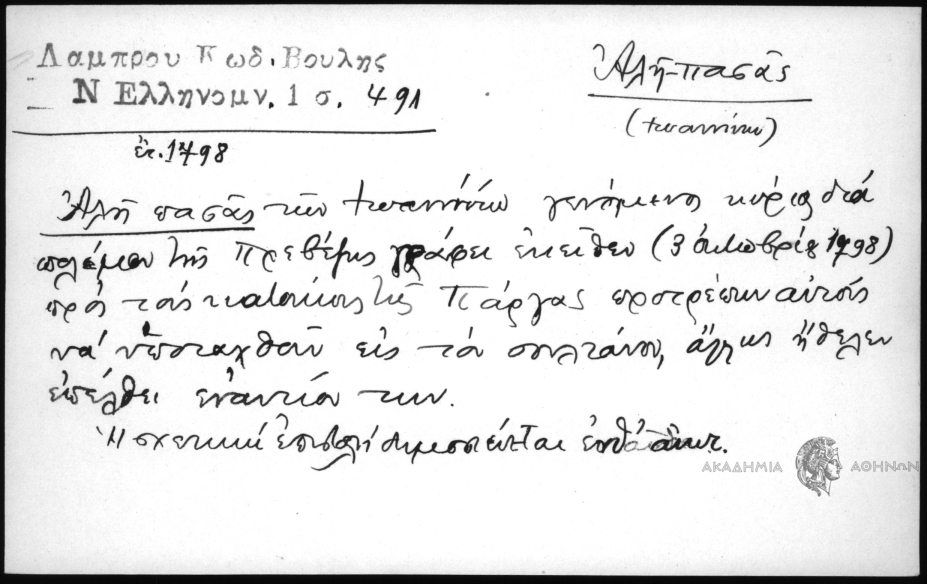 Λαμπρου Κωδ. Βουλης
Ν Ελληνομν. 1 σ. 491
ἔτ. 1798
Ἀλῆ-πασᾶς
(Ἰωαννίνων)
Ἀλῆ πασᾶς τῶν Ἰωαννίνων γενόμενος κύριος διὰ
πολέμου τῆς Πρεβέζης γράφει ἐκεῖθεν (3 ὀκτωβρίου 1798)
πρὸς τοὺς κατοίκους τῆς Πάργας προτρέπων αὐτοὺς
νὰ ὑποταχθοῦν εἰς τὸν σουλτάνον, ἄλλως ἤθελεν
ἐπέλθει ἐναντίον των.
Ἡ σχετικὴ ἐπιστολὴ δημοσιεύεται
ΑΚΑΔΗΜΙΑ ΑΘΗΝΩΝ